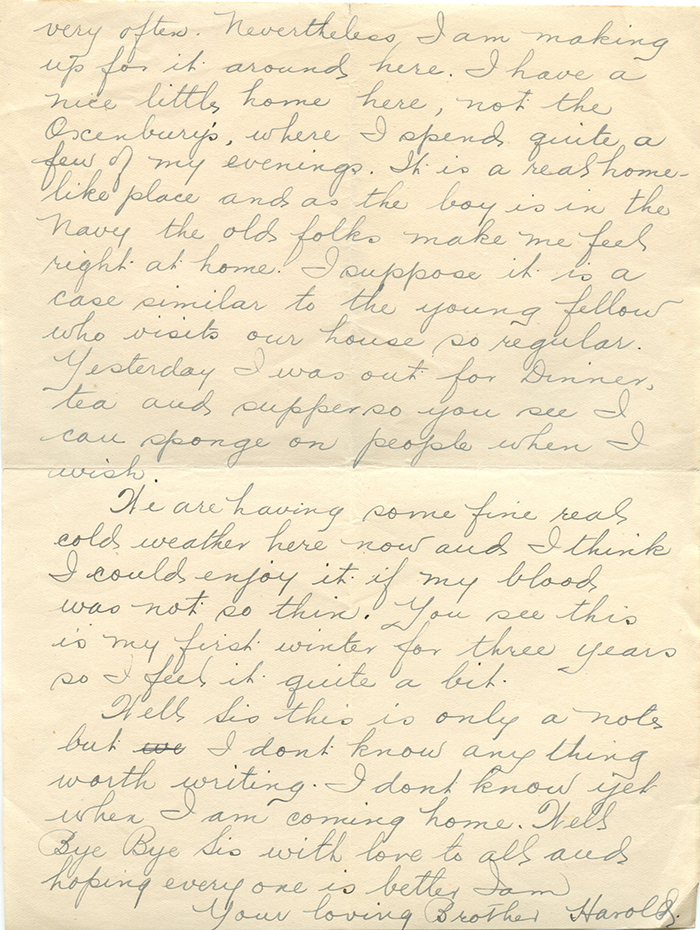 very often. Nevertheless I am making
up for it around here. I have a
nice little home here, not the
Oxenbury's, where I spend quite a
few of my evenings. It is a real home-
like place and as the boy is in the
Navy the old folks make me feel
right at home. I suppose it is a
case similar to the young fellow
who visits our house so regular.
Yesterday I was out for Dinner,
tea and supper so you see I
can sponge on people when I
wish.
We are having some fine real
cold weather here now and I think
I could enjoy it if my blood
was not so thin. You see this
is my first winter for three years
so I feel it quite a bit.
Well Sis this is only a note
but we I dont know any thing
worth writing. I dont know yet
when I am coming home. Well
Bye Bye Sis with love to all and
hoping every one is better I am
Your loving Brother Harold.